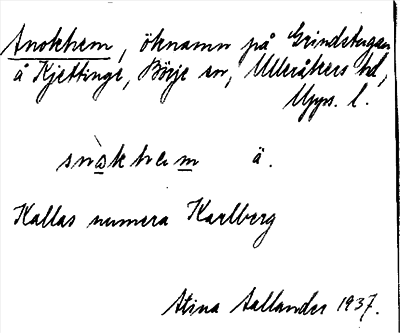 Snokhem, öknamn på Grindstugan
å Kjettinge, Börje sn, Ulleråkers hd,
Upps. l.
snòkhem ä.
Kallas numera Karlberg
Stina Sallander 1937.